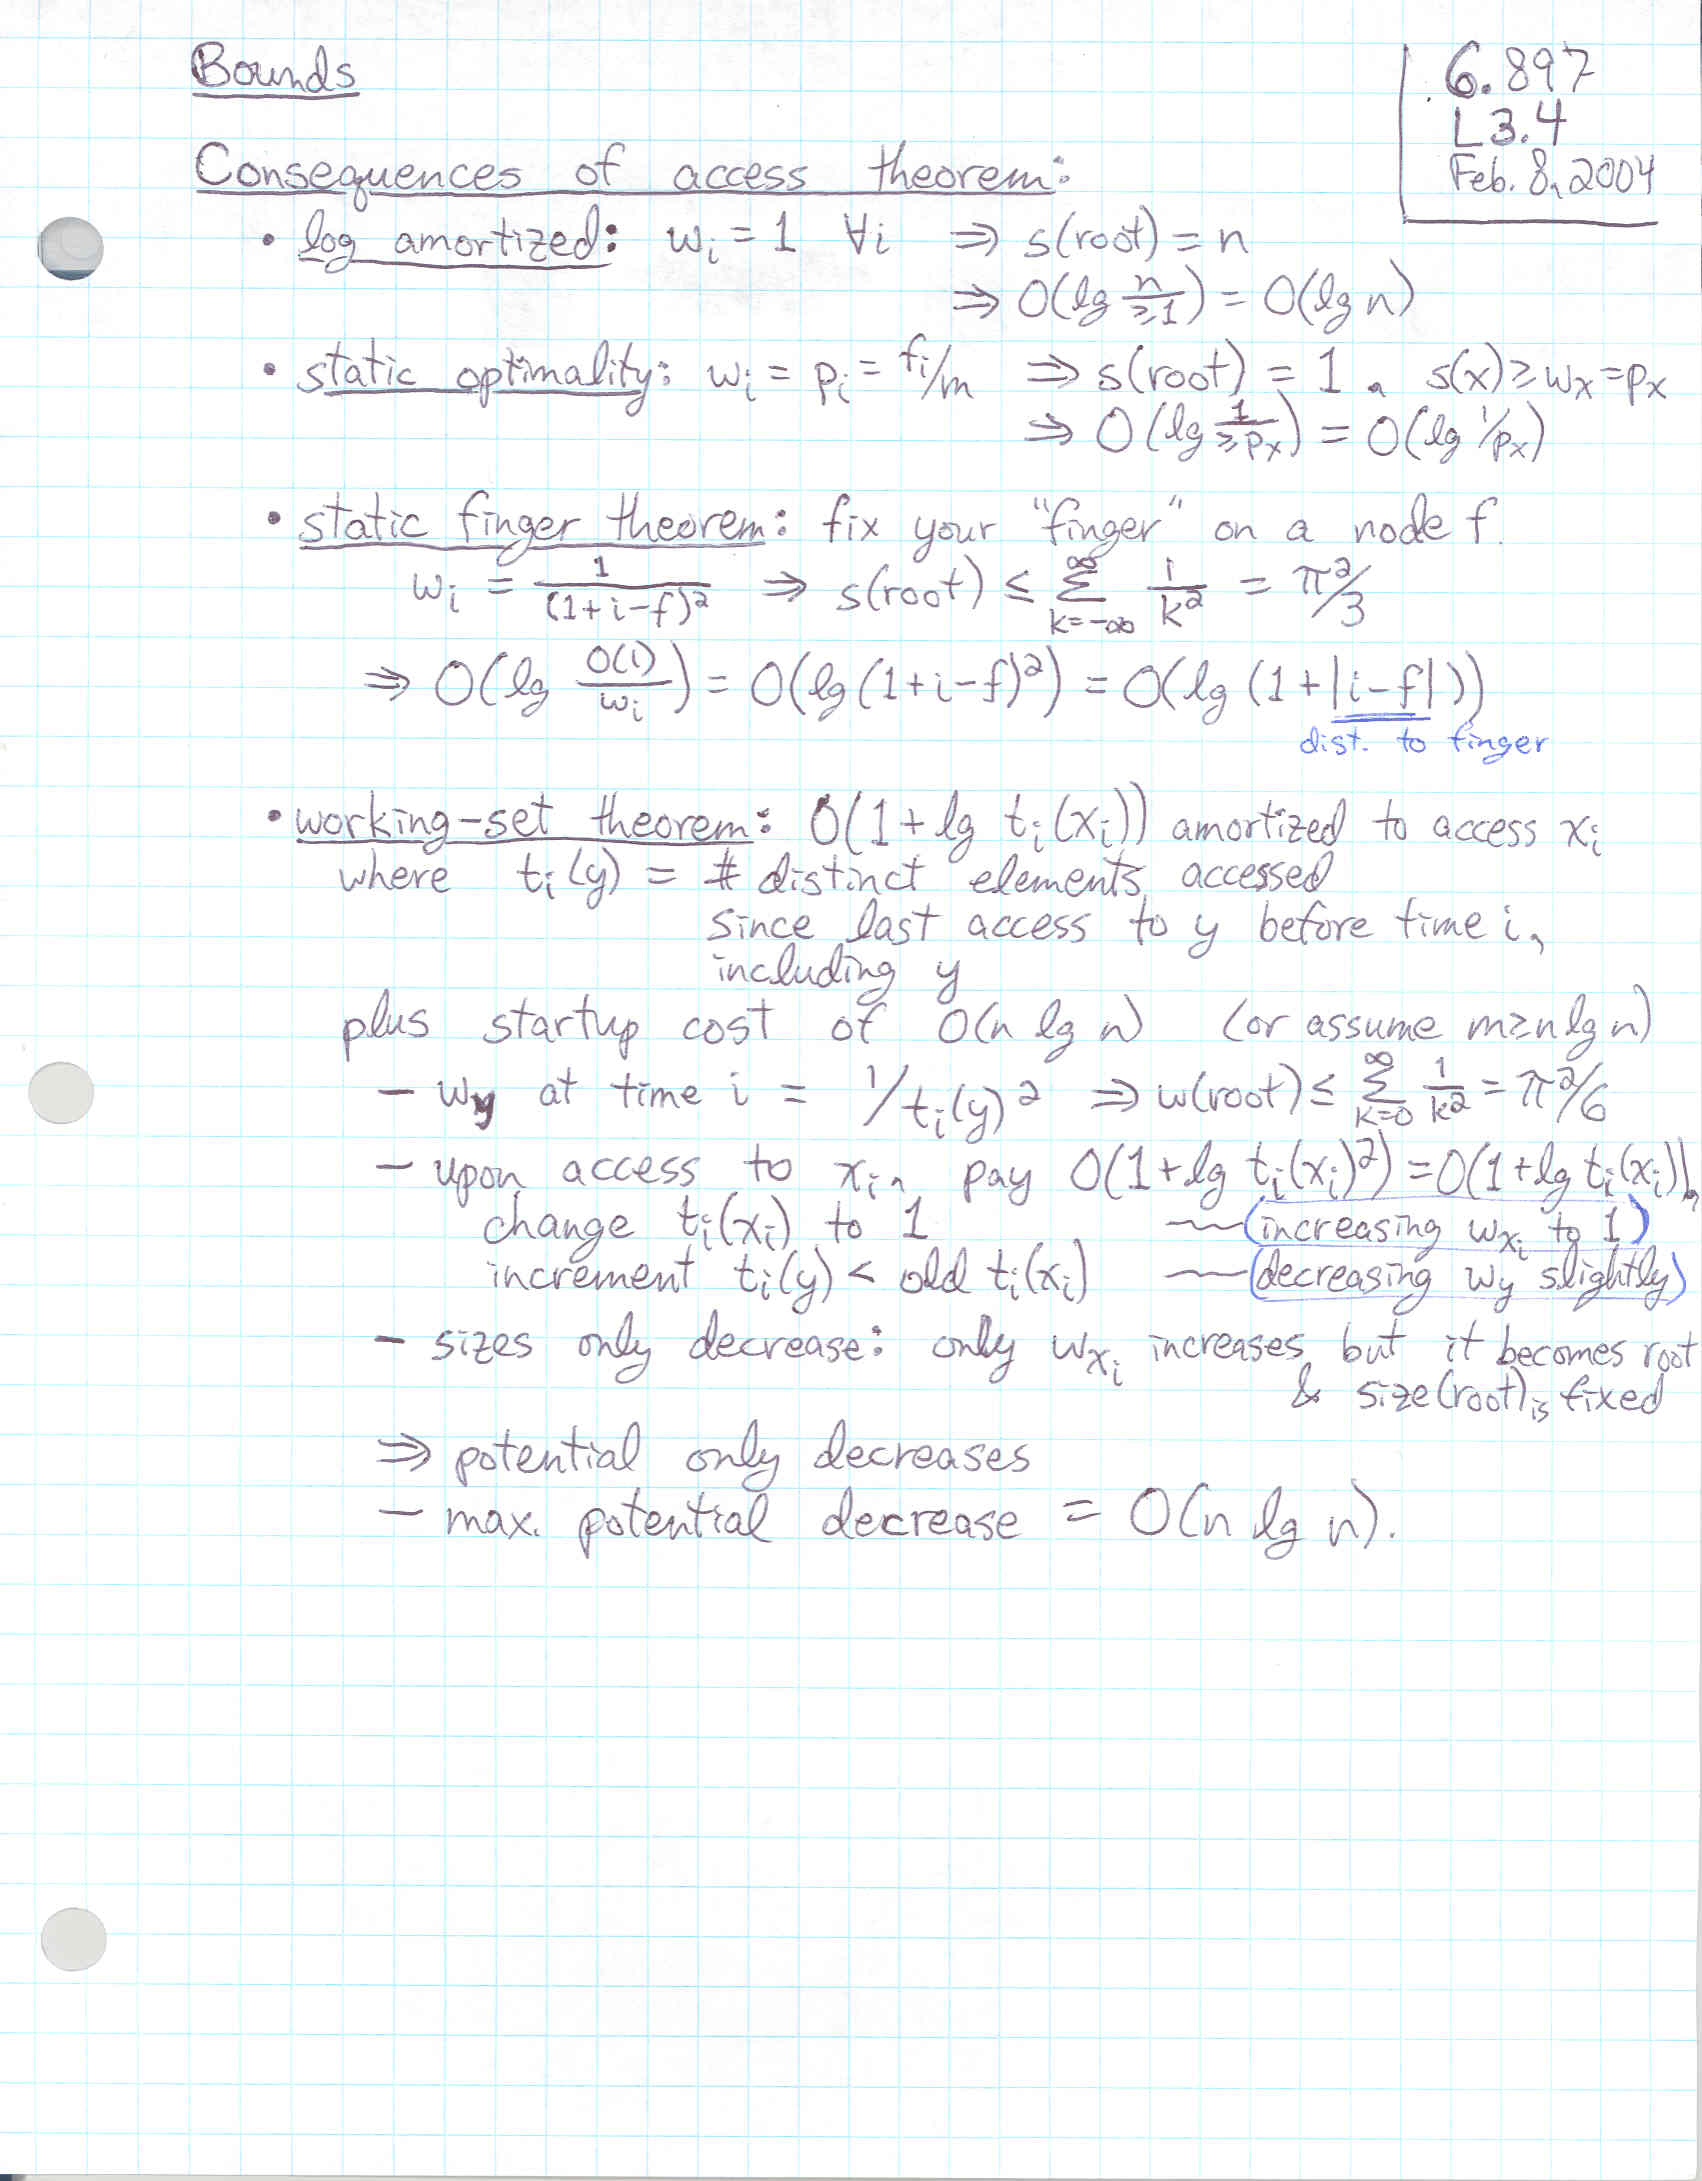 Bounds
6.897
L3.4
Feb. 8, 2004
Consequences of access theorem:
• log amortized: wᵢ = 1 ∀i ⇒ s(root) = n
⇒ O(lg n/≥1) = O(lg n)
• static optimality: wᵢ = pᵢ = fᵢ/m ⇒ s(root) = 1, s(x) ≥ wₓ = pₓ
⇒ O(lg 1/≥pₓ) = O(lg 1/pₓ)
• static finger theorem: fix your "finger" on a node f.
wᵢ = 1/(1+i-f)² ⇒ s(root) ≤ Σ_{k=-∞}^{∞} 1/k² = π²/3
⇒ O(lg O(1)/wᵢ) = O(lg (1+i-f)²) = O(lg (1+|i-f|))
dist. to finger
• working-set theorem: O(1+lg tᵢ(xᵢ)) amortized to access xᵢ
where tᵢ(y) = # distinct elements accessed
since last access to y before time i,
including y
plus startup cost of O(n lg n) (or assume m≥n lg n)
- w_y at time i = 1/tᵢ(y)² ⇒ w(root) ≤ Σ_{k=0}^{∞} 1/k² = π²/6
- upon access to xᵢ, pay O(1+lg tᵢ(xᵢ)²) = O(1+lg tᵢ(xᵢ)),
change tᵢ(xᵢ) to 1 ~ (increasing w_{xᵢ} to 1)
increment tᵢ(y) < old tᵢ(xᵢ) ~ (decreasing w_y slightly)
- sizes only decrease: only w_{xᵢ} increases, but it becomes root
& size(root) is fixed
⇒ potential only decreases
- max. potential decrease = O(n lg n).